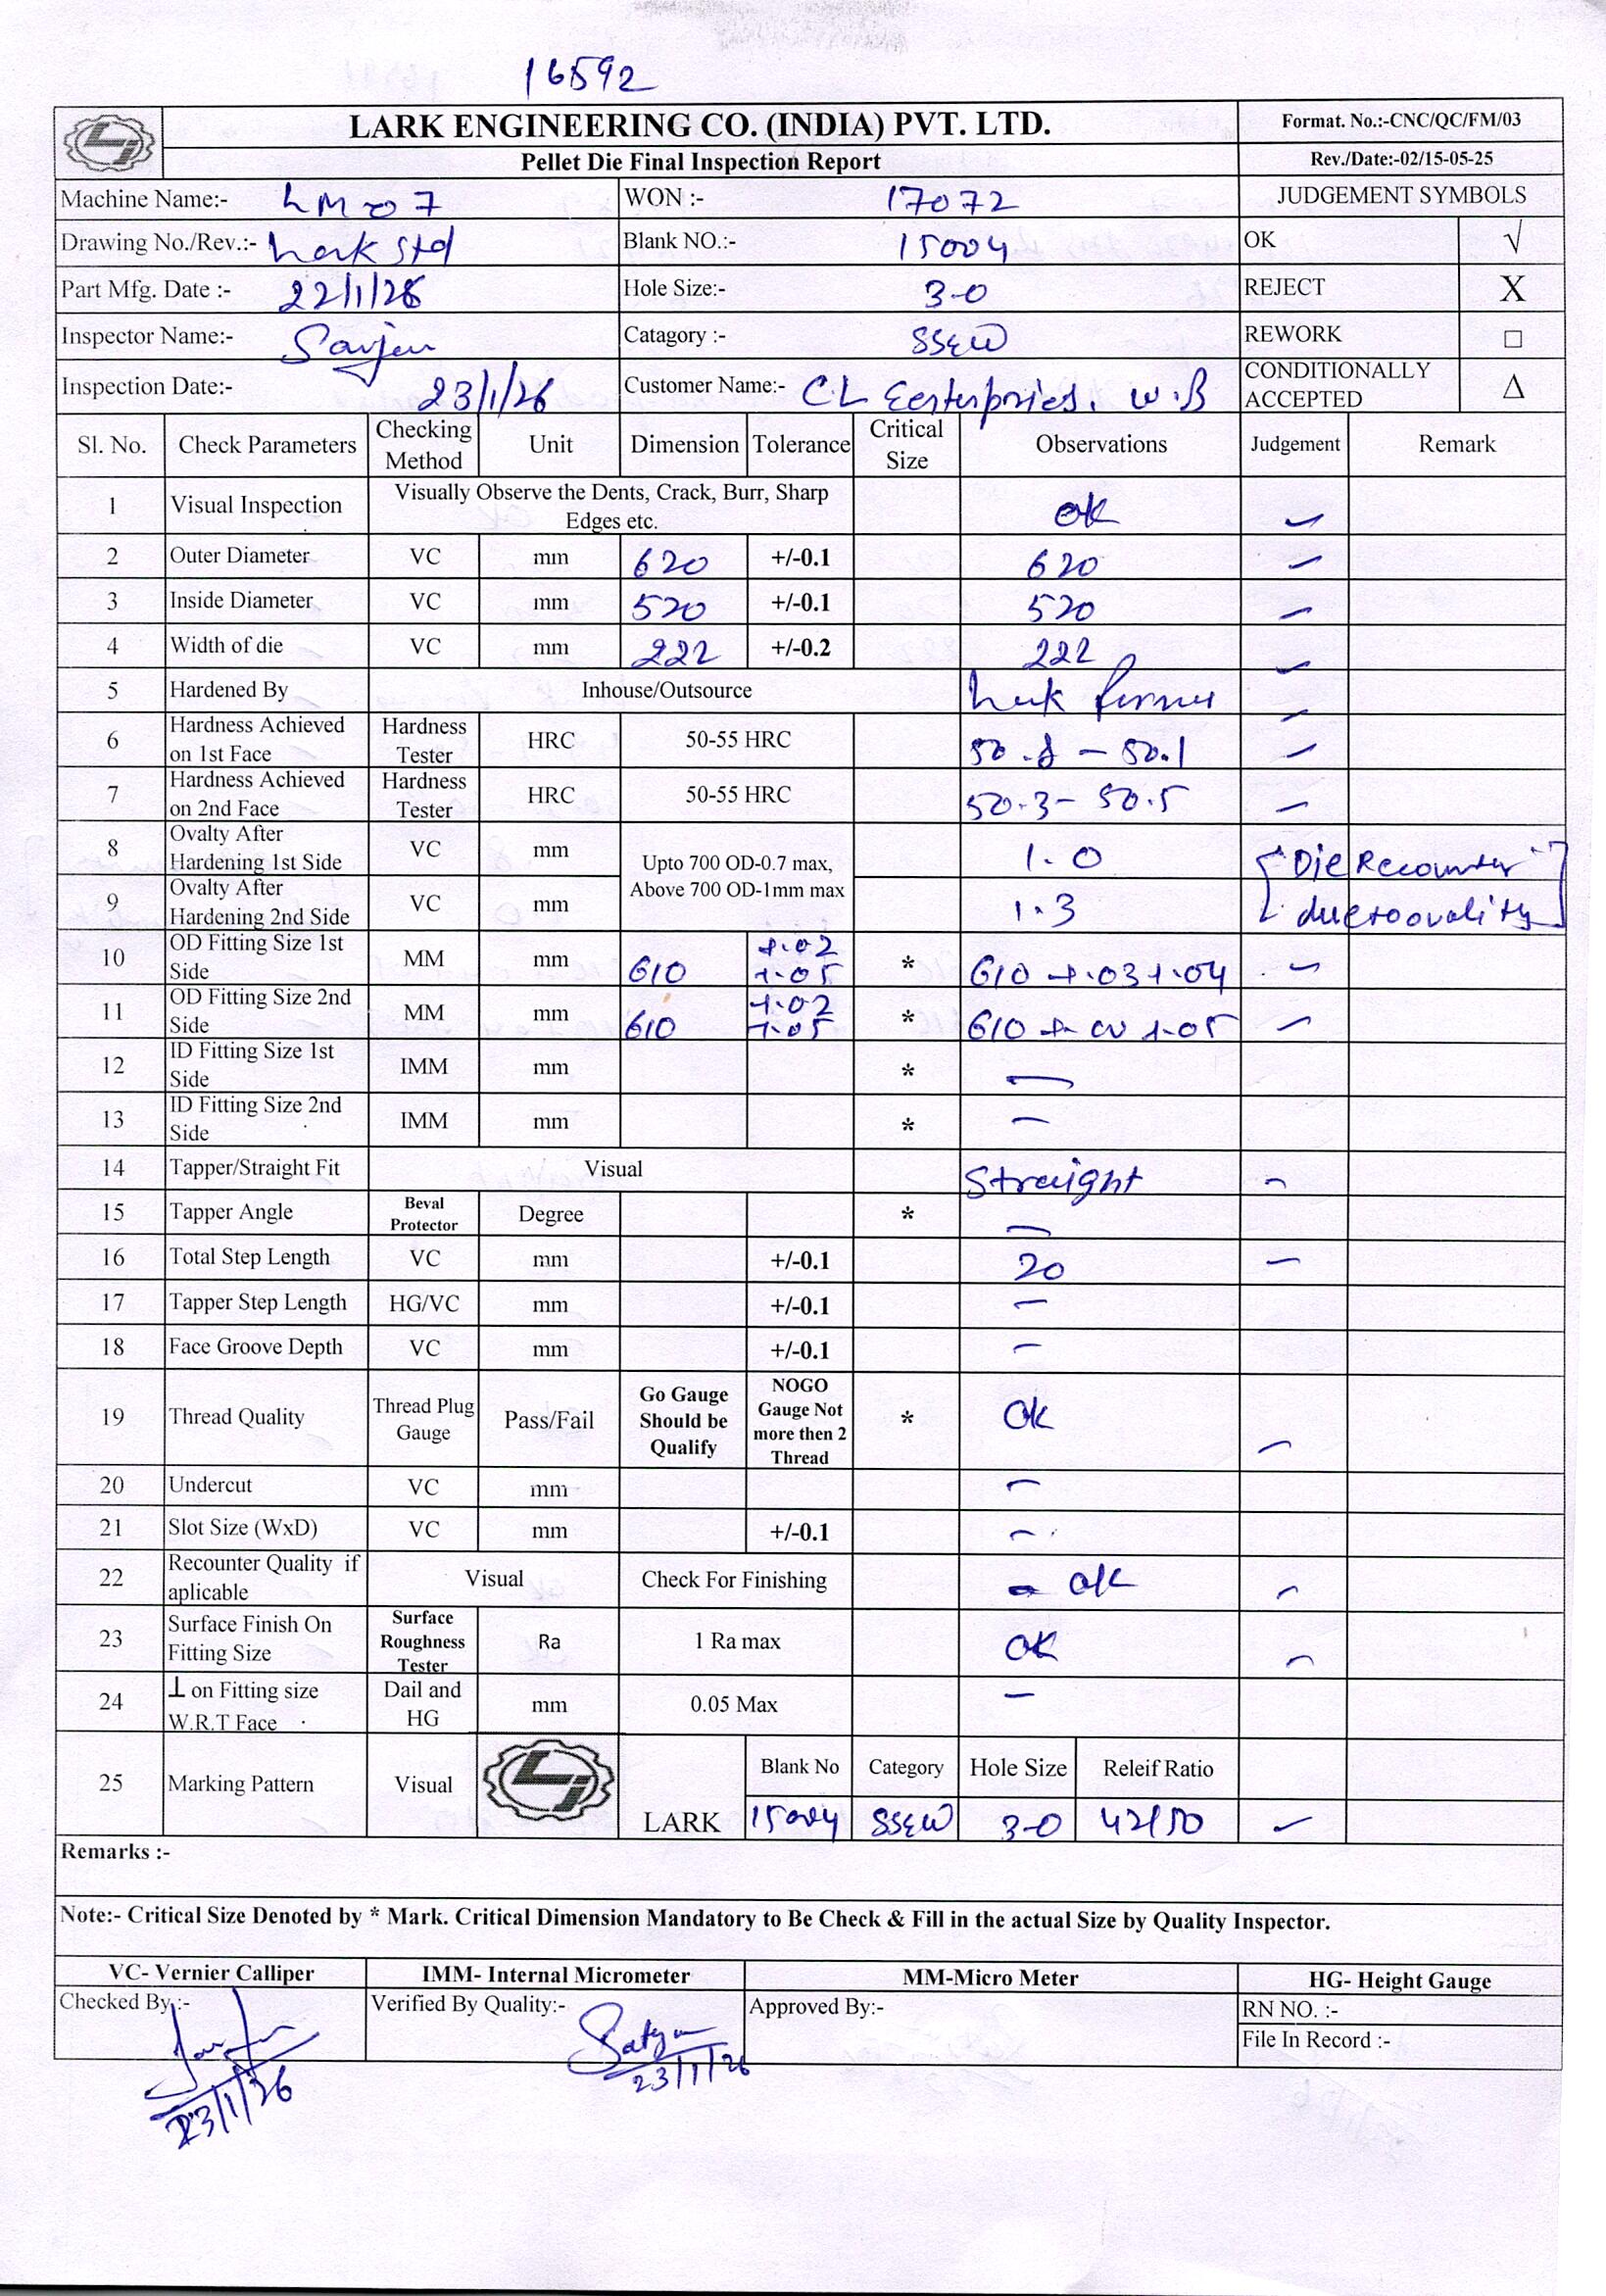 16592
LARK ENGINEERING CO. (INDIA) PVT. LTD. Format. No.:-CNC/QC/FM/03
Pellet Die Final Inspection Report Rev./Date:-02/15-05-25
Machine Name:- LM 07 WON :- 17072 JUDGEMENT SYMBOLS
Drawing No./Rev.:- Lark Std Blank NO.:- 15004 OK √
Part Mfg. Date :- 22/1/26 Hole Size:- 3-0 REJECT X
Inspector Name:- Catagory :- SS&W REWORK □
Inspection Date:- 23/1/26 Customer Name:- CL W.B CONDITIONALLY ACCEPTED Δ
Sl. No. Check Parameters Checking Method Unit Dimension Tolerance Critical Size Observations Judgement Remark
1 Visual Inspection Visually Observe the Dents, Crack, Burr, Sharp Edges etc. OK
2 Outer Diameter VC mm 620 +/-0.1 620
3 Inside Diameter VC mm 520 +/-0.1 520
4 Width of die VC mm 222 +/-0.2 222
5 Hardened By Inhouse/Outsource
6 Hardness Achieved on 1st Face Hardness Tester HRC 50-55 HRC - 50.1
7 Hardness Achieved on 2nd Face Hardness Tester HRC 50-55 HRC 50.3 - 50.5
8 Ovalty After Hardening 1st Side VC mm Upto 700 OD-0.7 max, Above 700 OD-1mm max 1.0 Die Recounter
9 Ovalty After Hardening 2nd Side VC mm 1.3 due to ovality
10 OD Fitting Size 1st Side MM mm 610 +.02 +.05 * 610 +.03 +.04
11 OD Fitting Size 2nd Side MM mm 610 +.02 +.05 * 610 +.05
12 ID Fitting Size 1st Side IMM mm * —
13 ID Fitting Size 2nd Side IMM mm * —
14 Tapper/Straight Fit Visual Straight
15 Tapper Angle Beval Protector Degree * —
16 Total Step Length VC mm +/-0.1 20
17 Tapper Step Length HG/VC mm +/-0.1 —
18 Face Groove Depth VC mm +/-0.1 —
19 Thread Quality Thread Plug Gauge Pass/Fail Go Gauge Should be Qualify NOGO Gauge Not more then 2 Thread * OK
20 Undercut VC mm —
21 Slot Size (WxD) VC mm +/-0.1 —
22 Recounter Quality if aplicable Visual Check For Finishing OK
23 Surface Finish On Fitting Size Surface Roughness Tester Ra 1 Ra max OK
24 ⊥ on Fitting size W.R.T Face Dail and HG mm 0.05 Max —
25 Marking Pattern Visual LARK Blank No Category Hole Size Releif Ratio
15004 SS&W 3-0 42/50
Remarks :-
Note:- Critical Size Denoted by * Mark. Critical Dimension Mandatory to Be Check & Fill in the actual Size by Quality Inspector.
VC- Vernier Calliper IMM- Internal Micrometer MM-Micro Meter HG- Height Gauge
Checked By :- Verified By Quality:- Approved By:- RN NO. :-
File In Record :-
Satyam
23/1/26
23/1/26